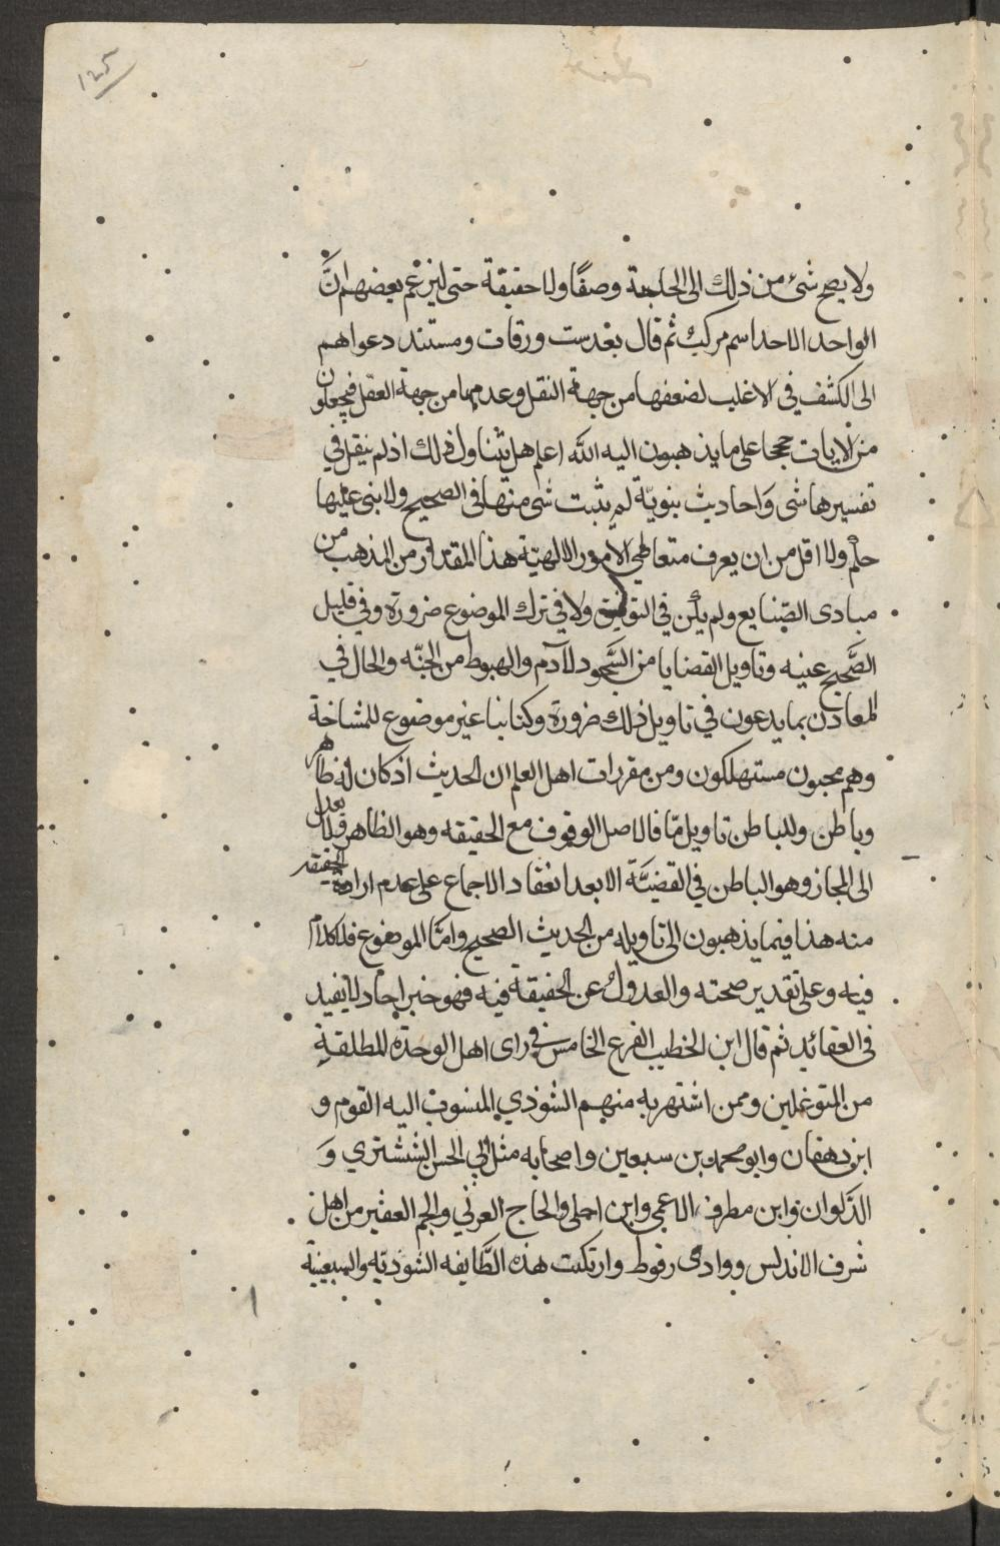 ١٢٥
ولا يصح شئ من ذلك الى الحاجة وصفًا ولا حقيقة حتى ليزعم بعضهم انَّ
الواحد الاحد اسم مركب ثم قال بعد ست ورقات ومستند دعواهم
الى الكشف في الاغلب لضعفها من جهة النقل وعدمها من جهة العقل فيجعلون
من الايات حججا على ما يذهبون اليه الله اعلم هل تتناول ذلك اذ لم ينقل في
تفسيرها شى وَاحاديث نبويّة لم يثبت شى منها فى الصحيح ولا بنى عليها
حكم ولا اقل من ان يعرف متعاطى الامور الالهيّة هذا المقدار ومن المذهب من
مبادى الصّنايع ولم يأن في التوفيق ولا في ترك الموضوع ضرورة وفي قليل
الصَّحيح غنيه وتاويل القضايا من السَّجود لآدم والهبوط من الجنّه والحال في
المعادن بما يدعون في تاويل ذلك ضرورة وكتابنا غير موضوع للمشاخة
وهم محبون مستهلكون ومن مقررات اهل العلم ان الحديث اذ كان له ظاهر
وباطن وللباطن تاويل مّا فالاصل الوقوف مع الحقيقه وهو الظاهر فلا يعدل
الى المجاز وهو الباطن في القضيَّة الا بعد انعقاد الاجماع على عدم ارادة الحقيقه
منه هذا فيما يذهبون الى تاويله من الحديث الصحيح وامّا الموضوع فلا كلام
فيه وعلى تقدير صحته والعدول عن الحقيقة فيه فهو خبر احاد لا يفيد
فى العقائد ثم قال ابن الخطيب الفرع الخامس في راى اهل الوحدة المطلقة
من المتوغلين وممن اشتهر به منهم الشوذي المنسوب اليه القوم و
ابن دهقان وابو محمد بن سبعين واصحابه مثل ابي الحسن الششتري وَ
ابن مطرف الاعمى وابن احلى والحاج العرني والجم الغفير من اهل
شرق الاندلس ووادى رقوط وارتكبت هذه الطَّايفه الشوذيه والسبعينية